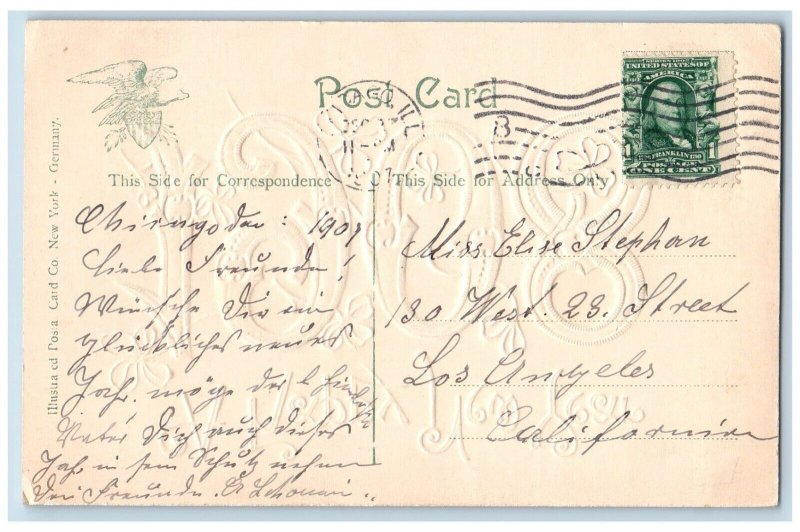 Post Card
CHICAGO, ILL.
1907
UNITED STATES OF
AMERICA
FRANKLIN
POSTAGE
ONE CENT
This Side for Correspondence
This Side for Address Only
Illustrated Postal Card Co. New York - Germany.
Chicago den : 1907
Liebe Freunde!
Wünsche Dir ein
glückliches neues
Jahr, möge der l.
Vater Dich auch dieses
Jahr in sein Schutz nehmen
Miss Elise Stephan
130 West. 23. Street
Los Angeles
Californien